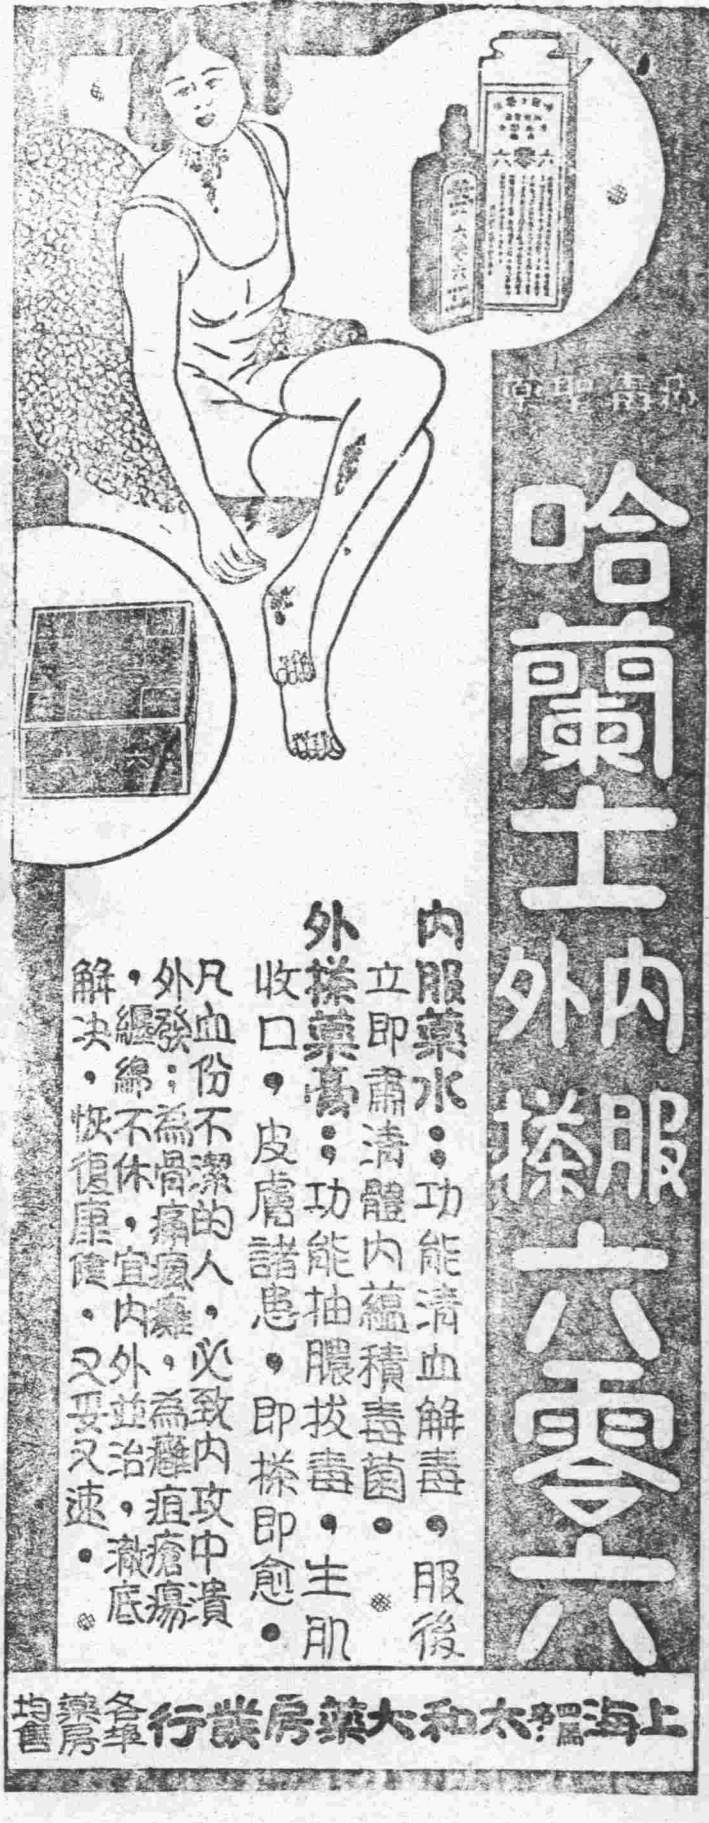 哈蘭士
內服
外搽
六零六
內服藥水；功能清血解毒，服後
立即肅清體內蘊積毒菌。
外搽藥膏；功能抽膿拔毒，生肌
收口，皮膚諸患，即搽即愈。
凡血份不潔的人，必致內攻中潰
外發；為骨痛瘋癱，為癰疽瘡瘍
，纏綿不休，宜內外並治，澈底
解決，恢復康健。又妥又速。
六零六
六零六
上海太和大藥房發行
各埠
藥房
均售